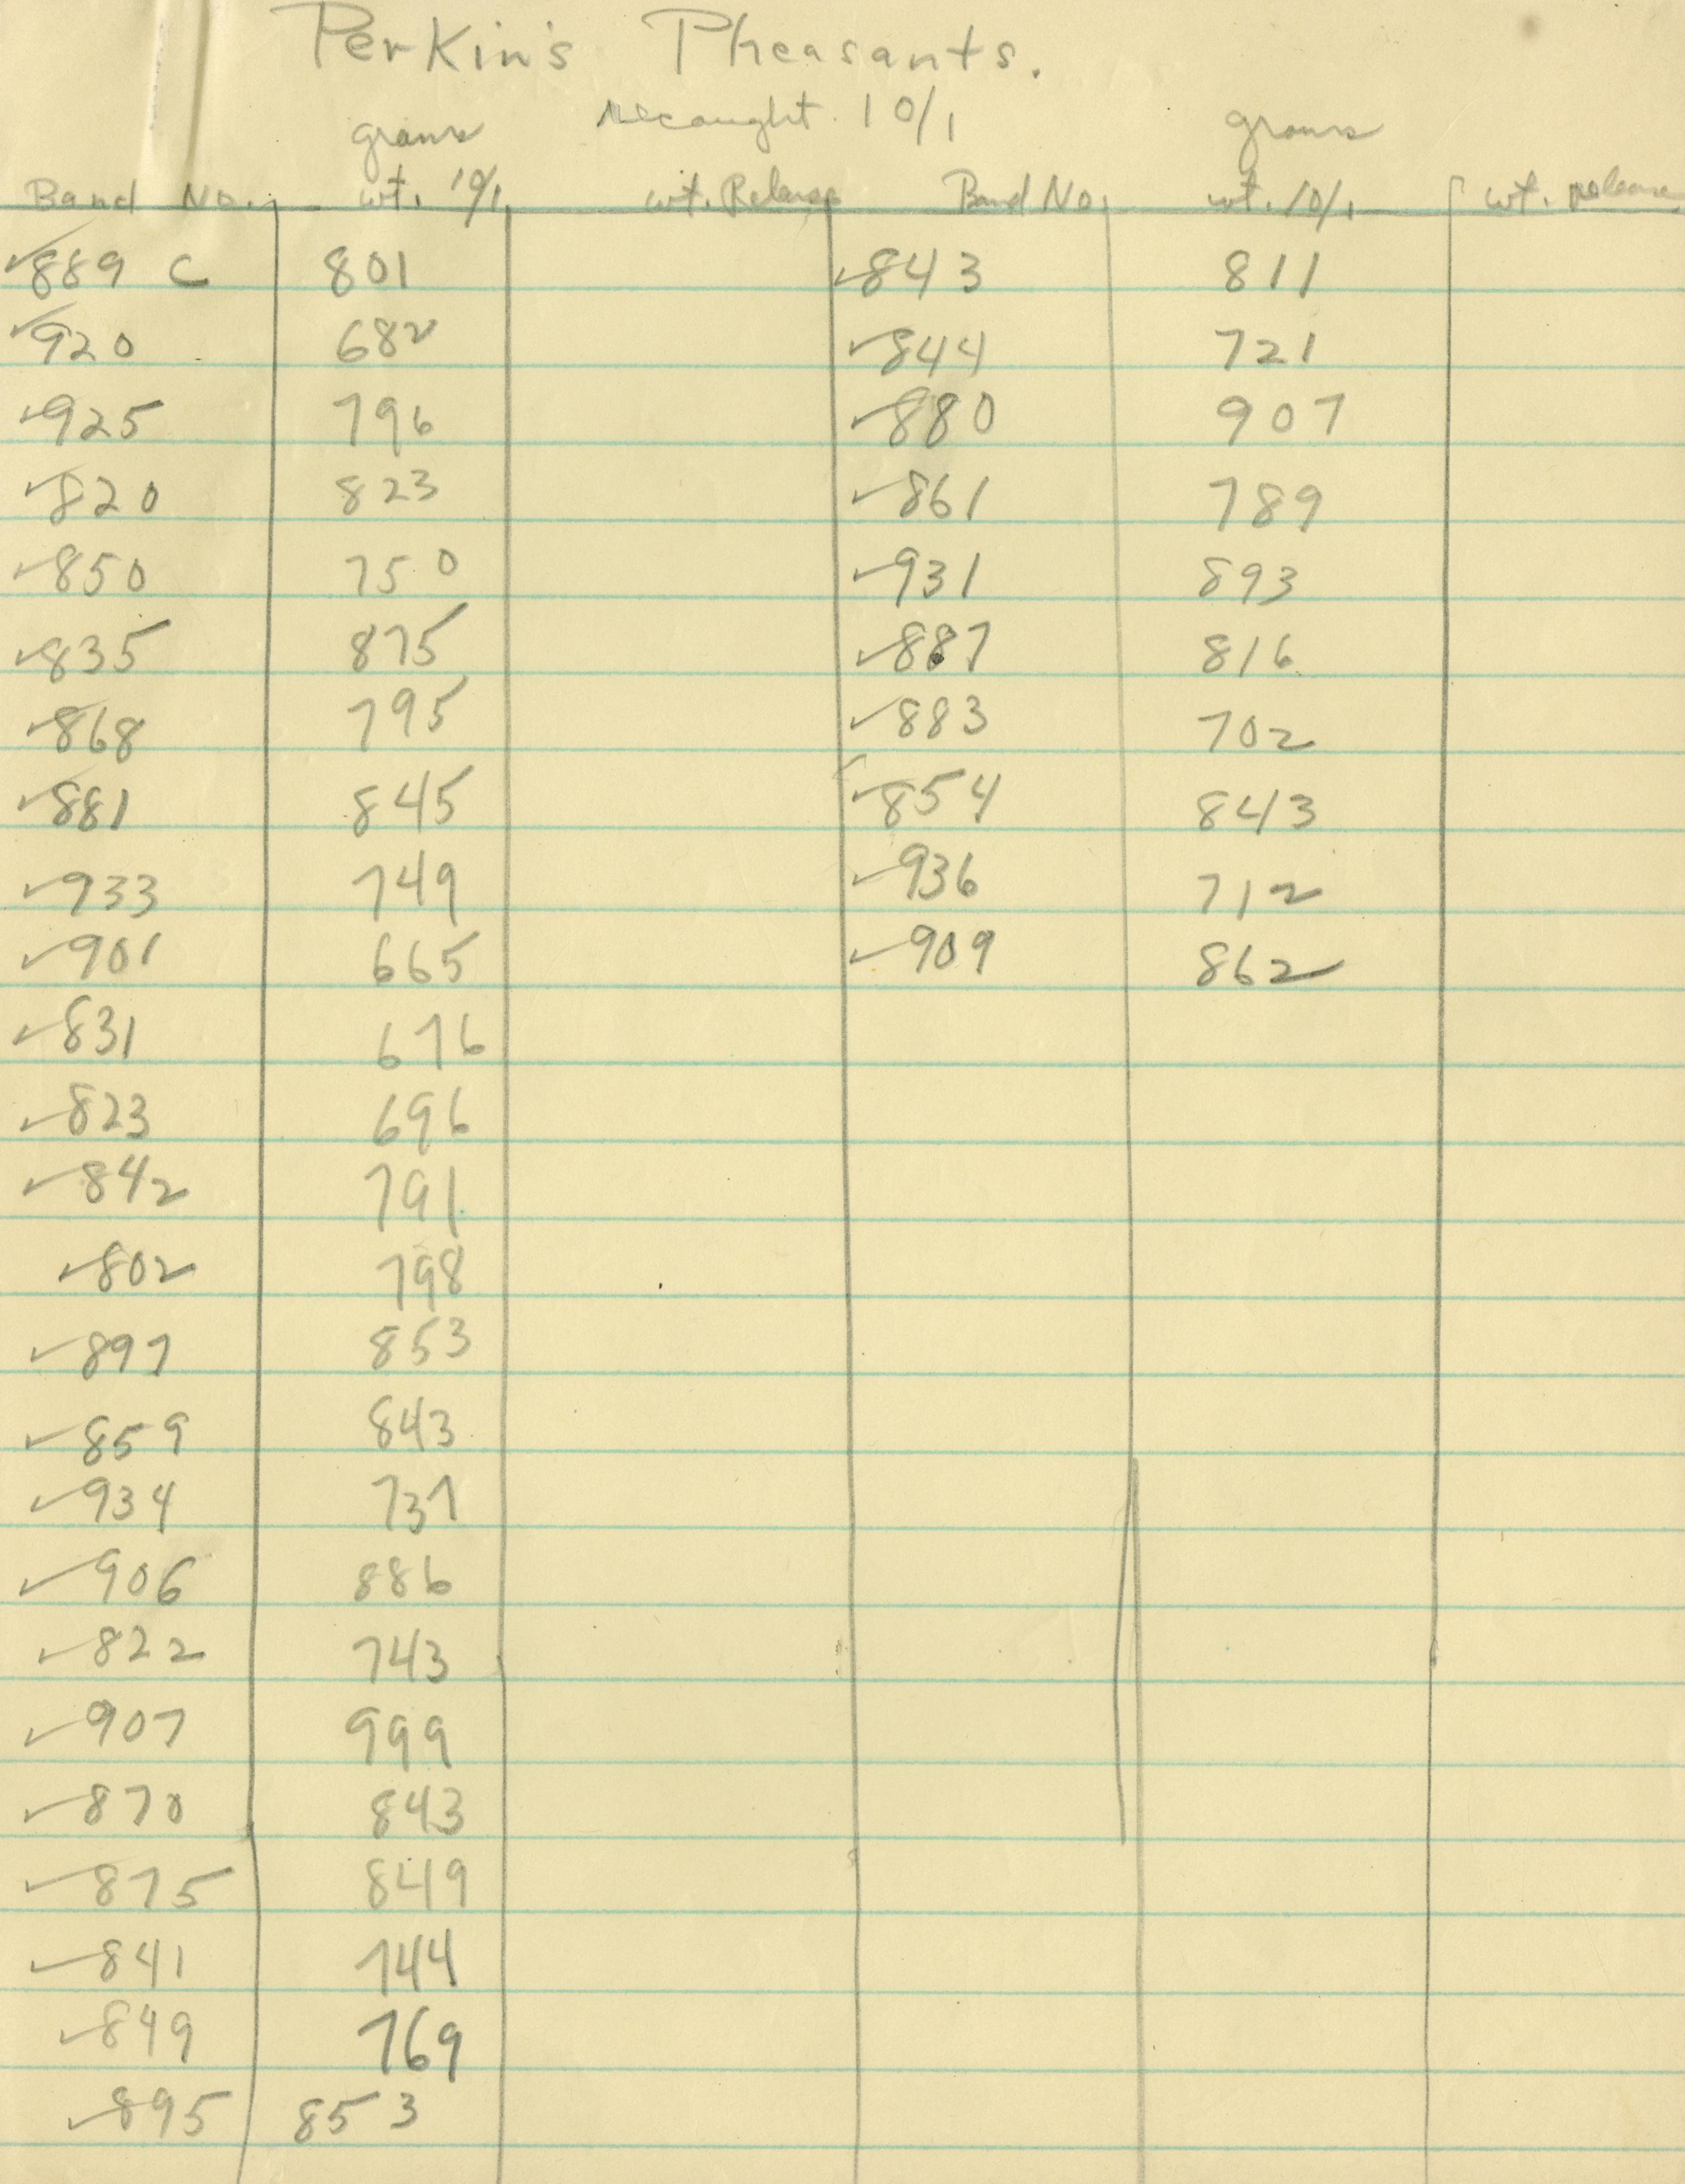 Perkin's Pheasants.
recaught 10/1
grams grams
Band No. wt. 10/1 wt. Release Band No. wt. 10/1 wt. release
✓889 C 801 ✓843 811
✓920 682 ✓844 721
✓925 796 ✓880 907
✓820 823 ✓861 789
✓850 750 ✓931 893
✓835 875 ✓887 816
✓868 795 ✓883 702
✓881 845 ✓854 843
✓933 749 ✓936 712
✓901 665 ✓909 862
✓831 676
✓823 696
✓842 791
✓802 798
✓897 853
✓859 843
✓934 737
✓906 886
✓822 743
✓907 999
✓870 843
✓875 849
✓841 744
✓849 769
✓895 853